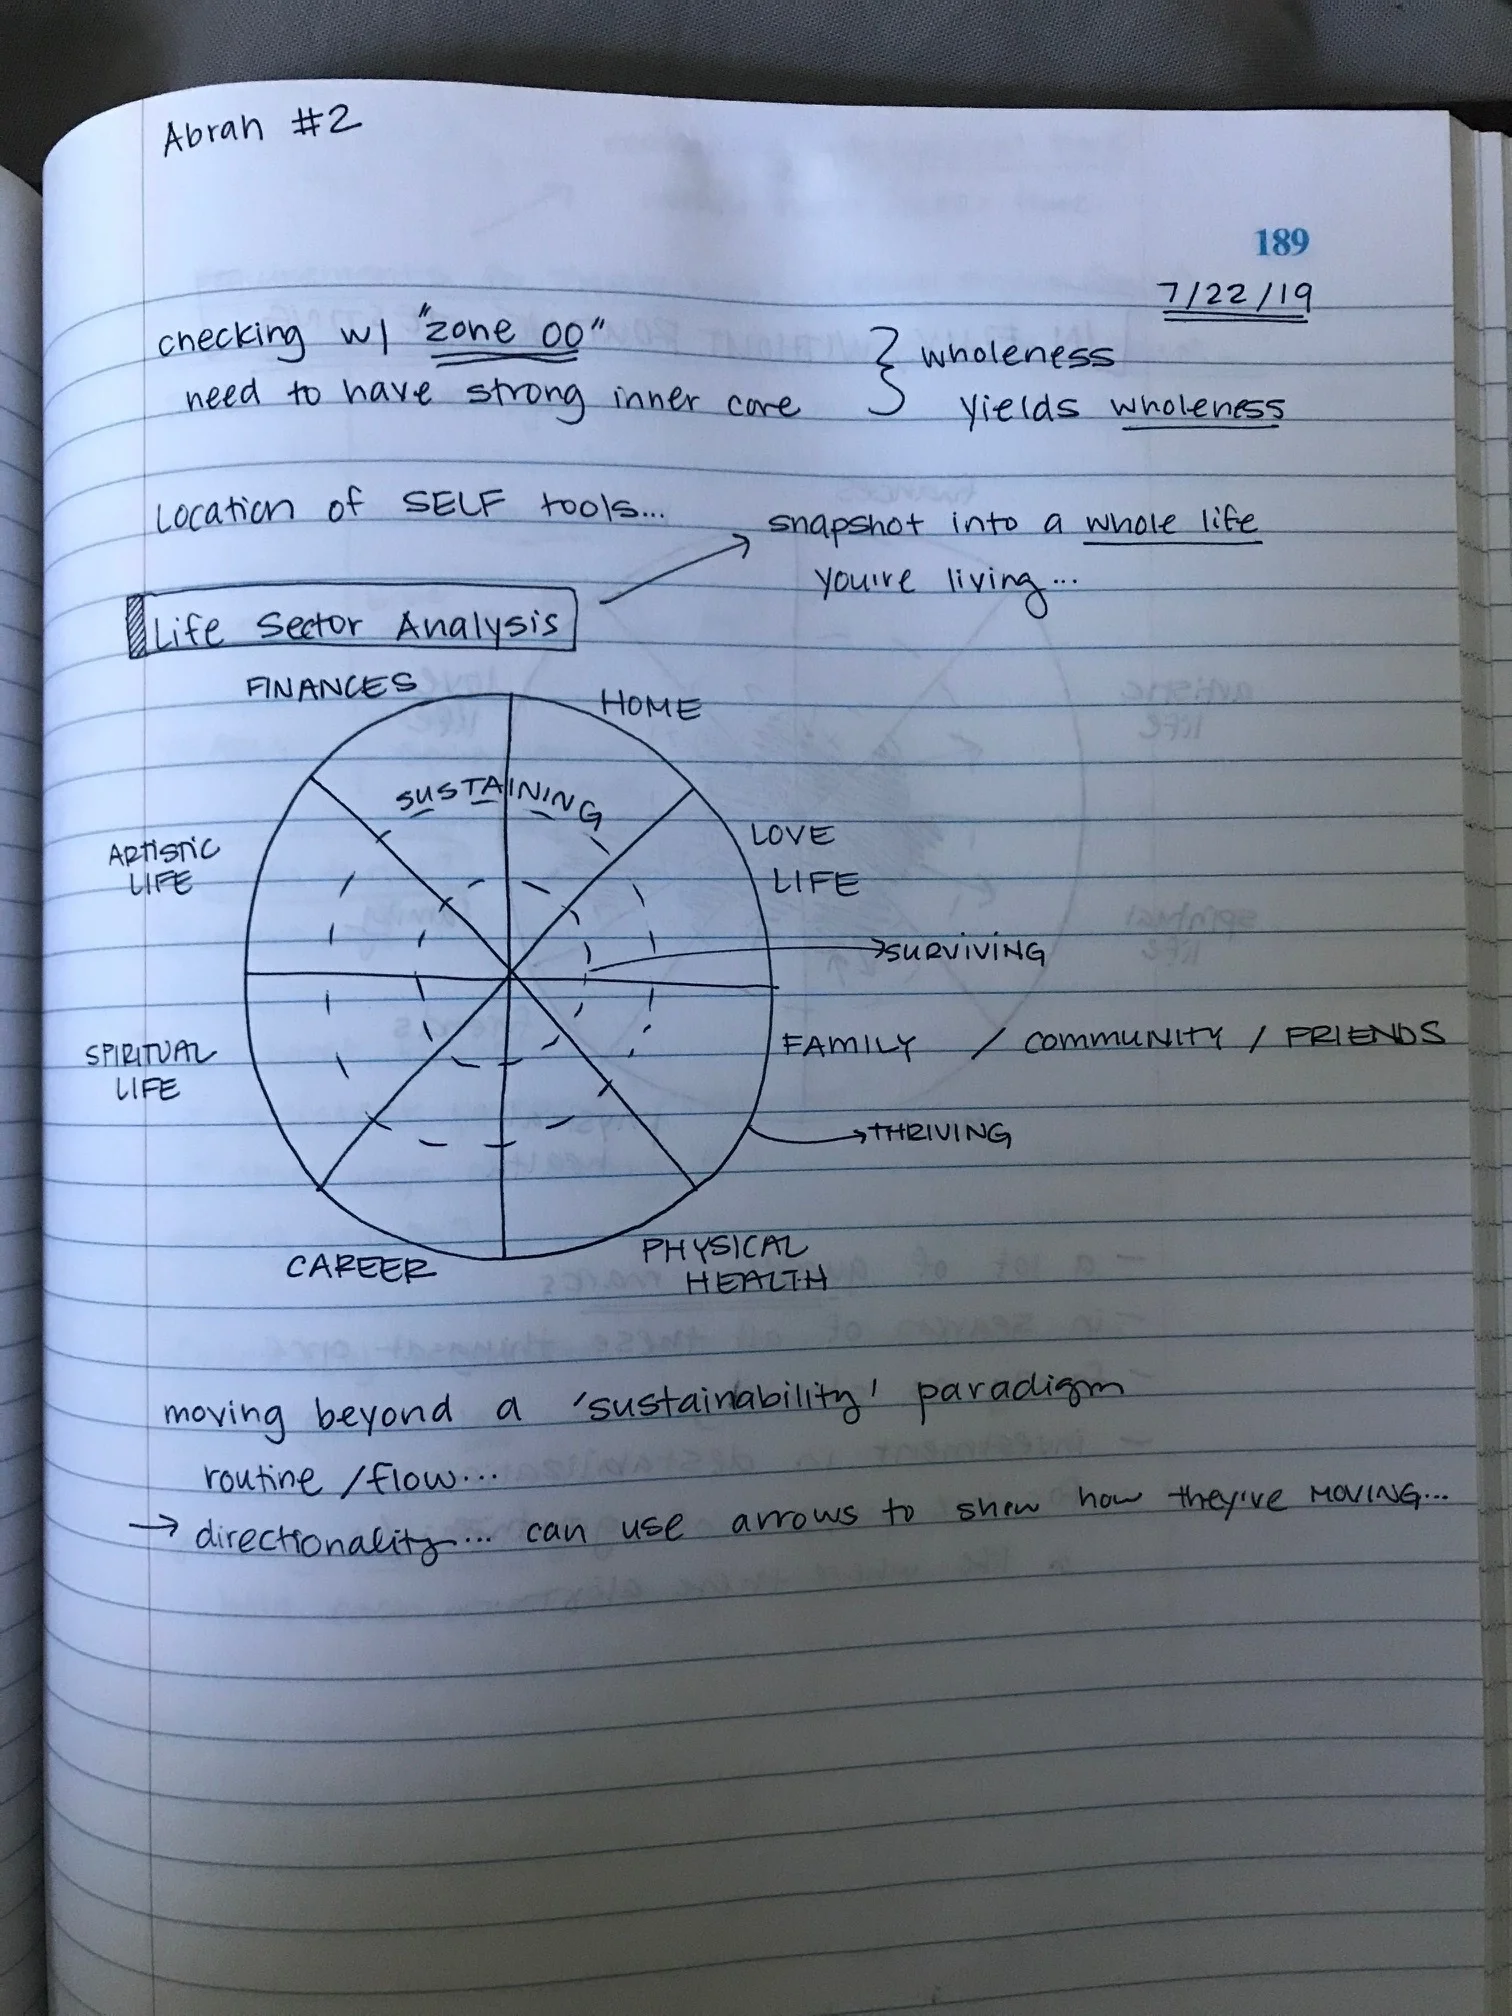 Abrah #2
189
7/22/19
checking w/ "zone 00"
need to have strong inner core
} wholeness
yields wholeness
Location of SELF tools...
snapshot into a whole life
you're living...
Life Sector Analysis
FINANCES
HOME
SUSTAINING
ARTISTIC
LIFE
LOVE
LIFE
SURVIVING
SPIRITUAL
LIFE
FAMILY / COMMUNITY / FRIENDS
THRIVING
CAREER
PHYSICAL
HEALTH
moving beyond a 'sustainability' paradigm
routine / flow...
→ directionality... can use arrows to show how they're MOVING...